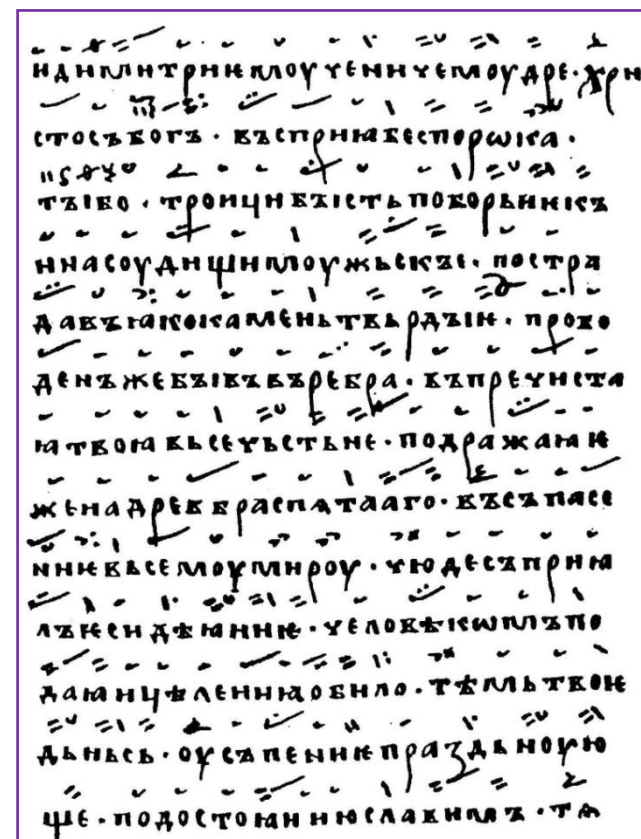 нднмнтрнѥмоучєннчємоудрє · хрн
стосъбогъ · въспрнꙗбєспорѡка ·
тꙑбо · тронцнбꙑстьпоборьннкъ
ннасоуднщнмоужьскꙑ · постра
давъꙗкокамєньтвьрдꙑн · пробо
дєнъжєбꙑвъвърєбра · въпрєчнста
ꙗтвоꙗвьсєчьстьнє · подражаꙗѥ
жєнадрєвѣраспѧтааго · въсъпасє
ннѥвьсємоумнроу · чюдєсъпрнꙗ
лъѥсндѣꙗннѥ · чєловѣкѡмъпо
даꙗнцѣлєннꙗобнло · тѣмьтвоѥ
дьньсь · оусъпєннѥпраздьноую
щє · подостоꙗннюславнмъ · тѧ